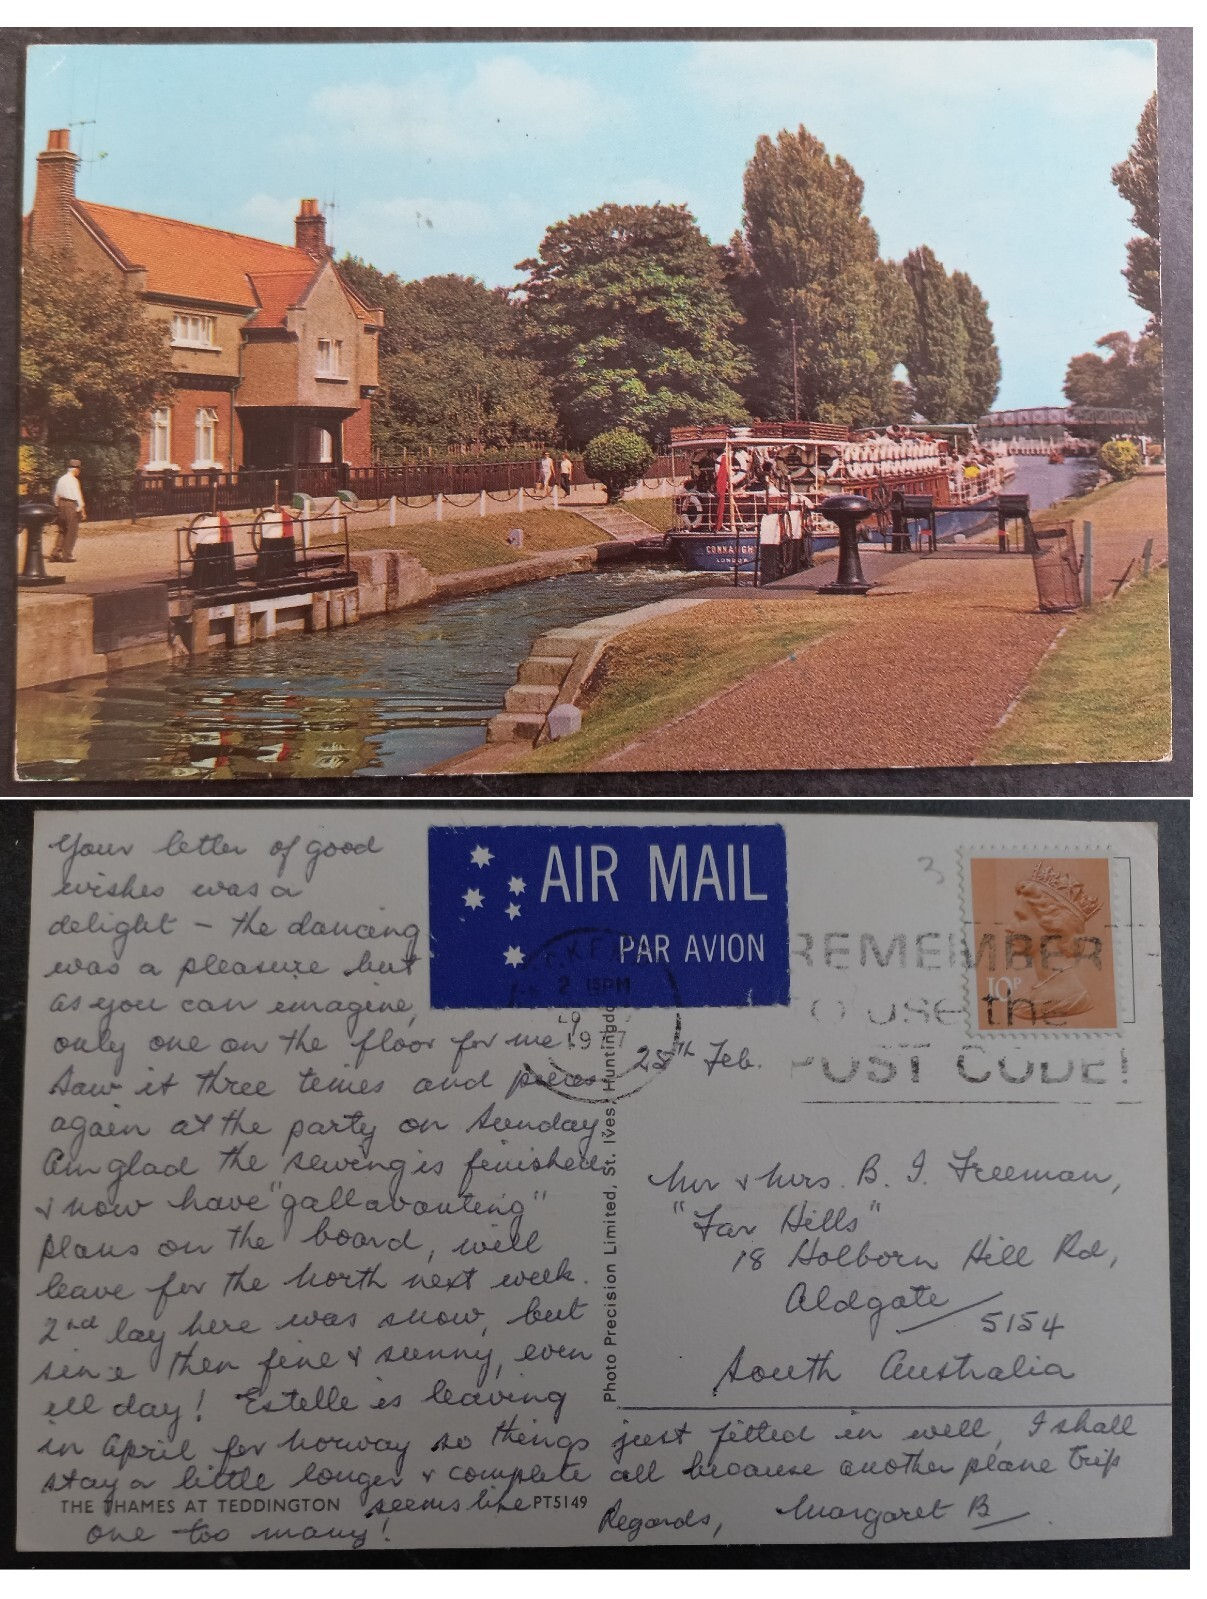 CONNAUGH
LONDON
Your letter of good
wishes was a
delight – the dancing
was a pleasure but
as you can imagine,
only one on the floor for me!
Saw it three times and pieces
again at the party on Sunday
Am glad the sewing is finished
& now have "gallavanting"
plans on the board, will
leave for the North next week.
2nd day here was snow, but
since then fine & sunny, even
all day! Estelle is leaving
in April for Norway so things just fitted in well, I shall
stay a little longer & complete all because another plane trip
seems like
one too many!
Regards, Margaret B
THE THAMES AT TEDDINGTON
PT5149
Photo Precision Limited, St. Ives, Huntingdo
AIR MAIL
PAR AVION
2 15PM
REMEMBER
TO USE the
POST CODE!
3
10P
28th Feb.
Mr & Mrs. B. I. Freeman,
"Far Hills"
18 Holborn Hill Rd,
Aldgate
5154
South Australia